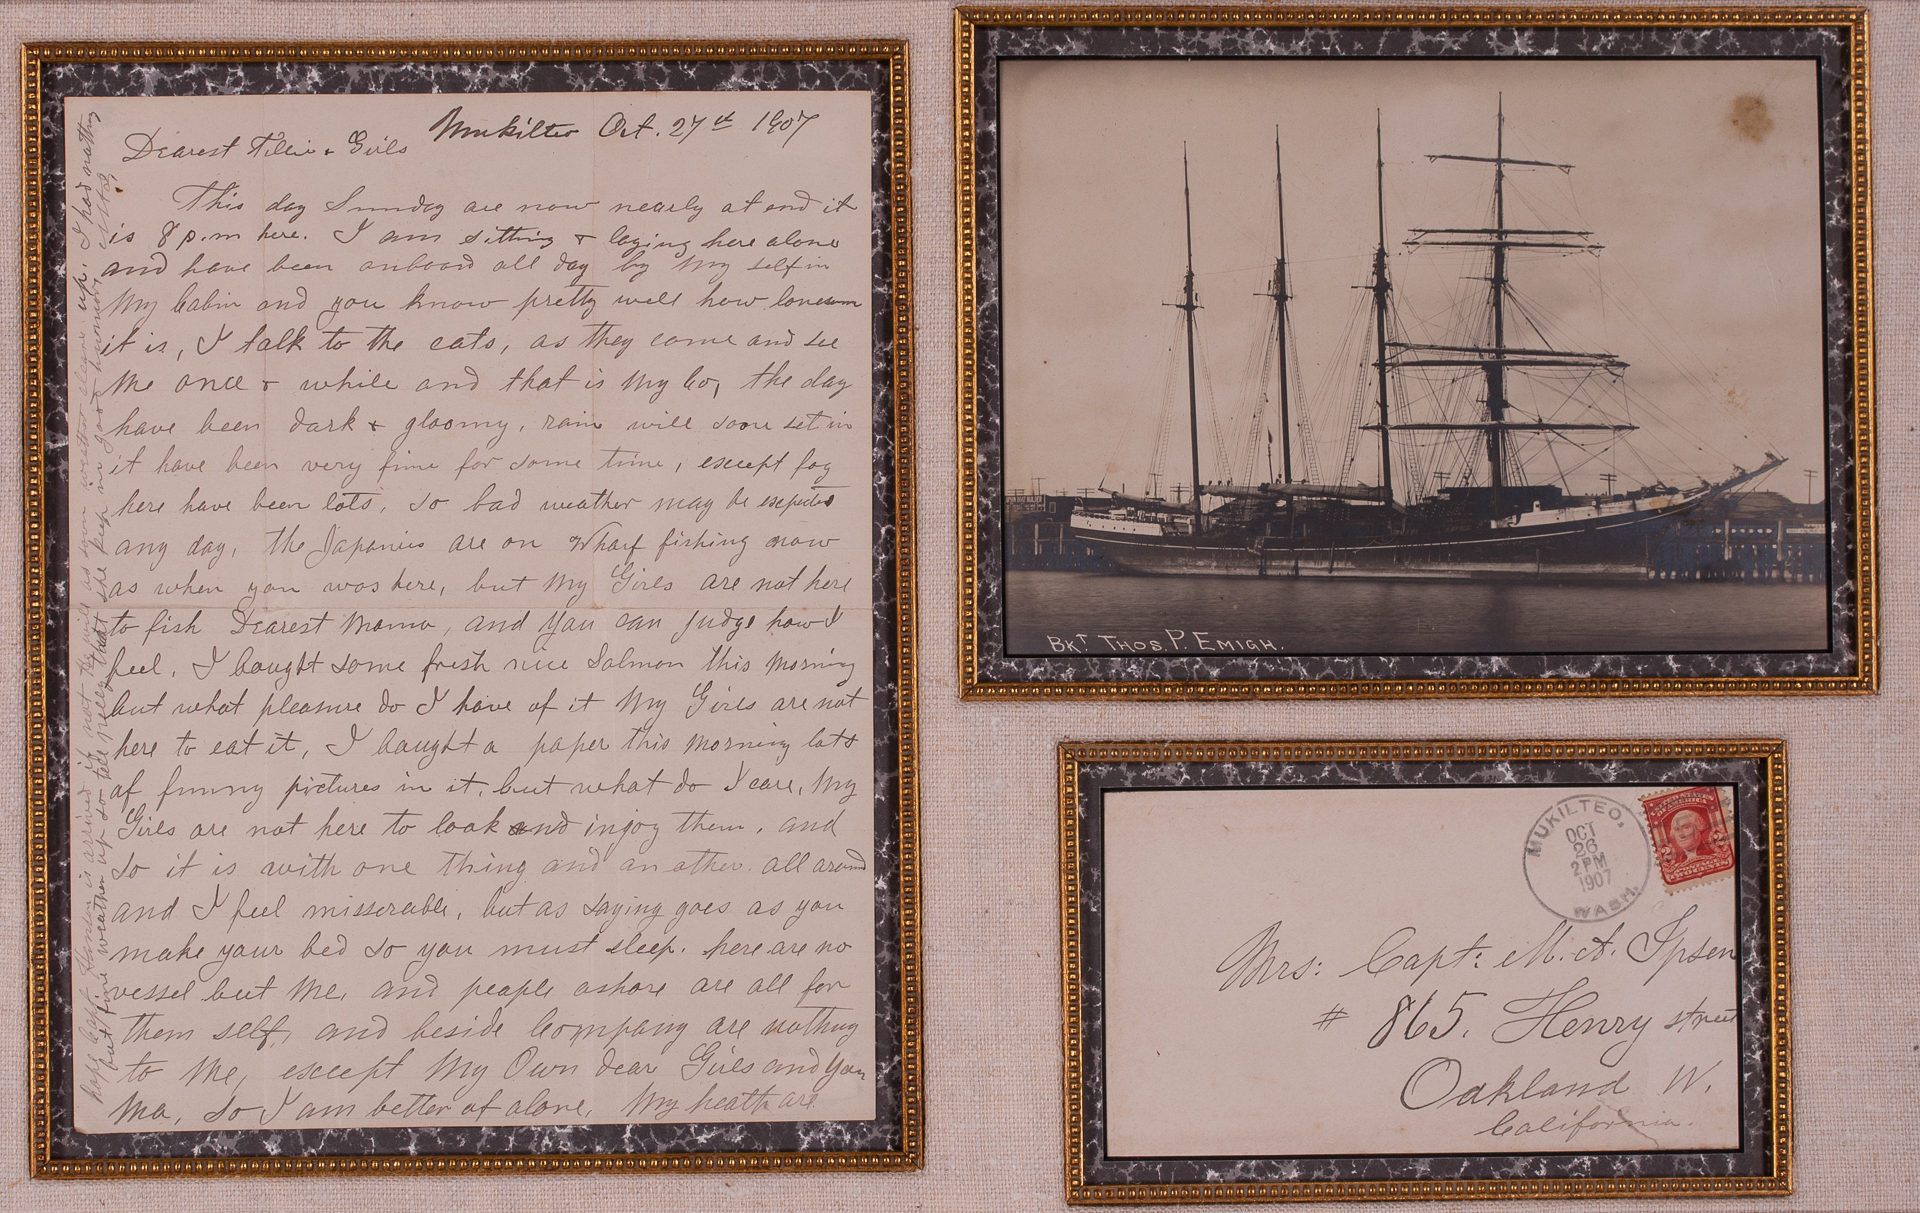 Mukilteo Oct. 27th 1907
Dearest Tillie & Girls
This day Sunday are now nearly at end it
is 8 p.m here. I am sitting & laying here alone
and have been onboard all day by My self in
My Cabin and you know pretty well how lonesom
it is, I talk to the cats, as they come and see
Me once & while and that is My Co, the day
have been dark & gloomy, rain will soon set in
it have been very fine for some time, except fog
here have been lots, so bad weather may be expected
any day, the Japanies are on Wharf fishing now
as when you was here, but My Girls are not here
to fish Dearest Mama, and you can judge how I
feel, I bought some fresh nice Salmon this Morning
but what pleasure do I have of it My Girls are not
here to eat it, I bought a paper this Morning lots
of funny pictures in it, but what do I care, My
Girls are not here to look and injoy them, and
so it is with one thing and an other all around
and I feel misserable, but as saying goes as you
make your bed so you must sleep. here are no
vessel but Me, and people ashore are all for
them self, and beside Company are nothing
to Me, except My Own dear Girls and You
Ma, so I am better of alone, My heath are
hope Capt. Hansen is arrived is not he will as soon weather clear up, I had nothing
but fine weather up so tell Nelly that she keep in good humor
BKT THOS. P. EMIGH.
MUKILTEO,
OCT
26
2 PM
1907
WASH.
UNITED STATES
OF AMERICA
2 2
Mrs: Capt: M. A. Ipsen
# 865. Henry street
Oakland W.
California.